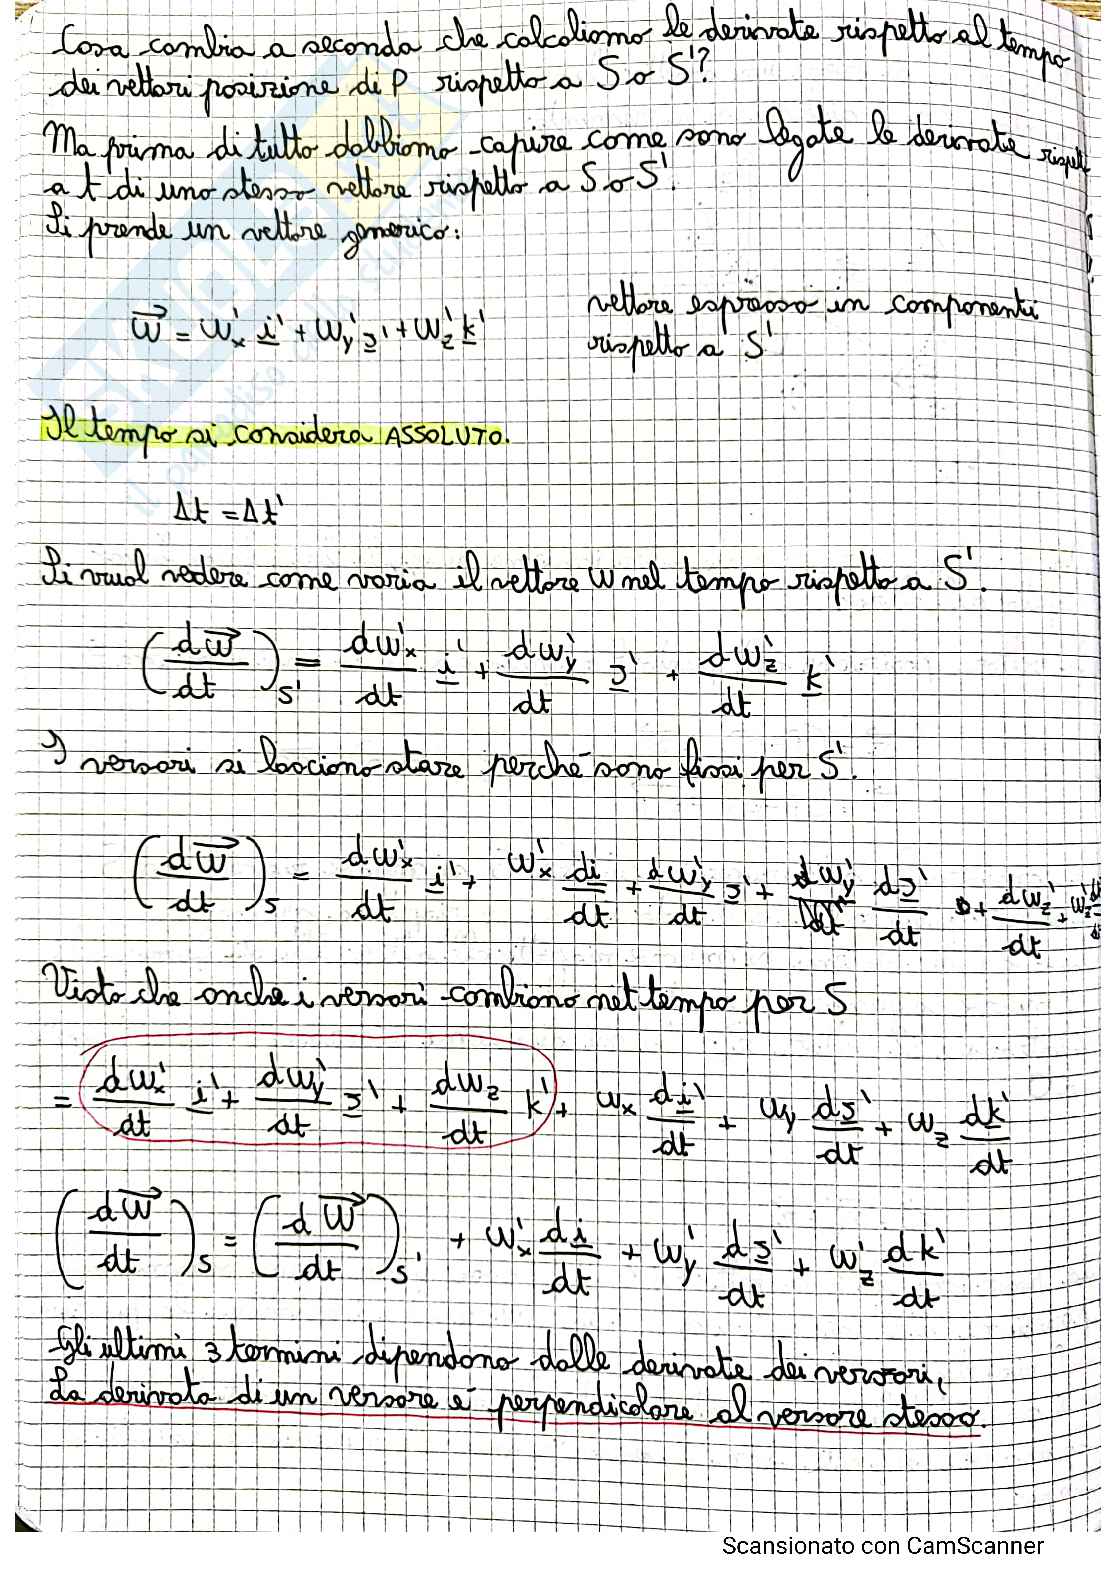 Cosa cambia a seconda che calcoliamo le derivate rispetto al tempo
dei vettori posizione di P rispetto a S o S'?
Ma prima di tutto dobbiamo capire come sono legate le derivate rispett
a t di uno stesso vettore rispetto a S o S'.
Si prende un vettore generico:
w⃗ = w'x i' + w'y j' + w'z k'
vettore espresso in componenti
rispetto a S'
Il tempo si considera ASSOLUTO.
Δt = Δt'
Si vuol vedere come varia il vettore w nel tempo rispetto a S'.
(dw⃗/dt)S' = dw'x/dt i' + dw'y/dt j' + dw'z/dt k'
I versori si lasciono stare perché sono fissi per S'.
(dw⃗/dt)S = dw'x/dt i' + w'x di/dt + dw'y/dt j' + dw'y dj'/dt + dw'z/dt + w'z
Visto che anche i versori cambiono nel tempo per S
= dw'x/dt i' + dw'y/dt j' + dwz/dt k' + wx di'/dt + wy dj'/dt + wz dk'/dt
(dw⃗/dt)S = (dw⃗/dt)S' + w'x di/dt + w'y dj'/dt + w'z dk'/dt
Gli ultimi 3 termini dipendono dalle derivate dei versori,
La derivata di un versore è perpendicolare al versore stesso.
Scansionato con CamScanner